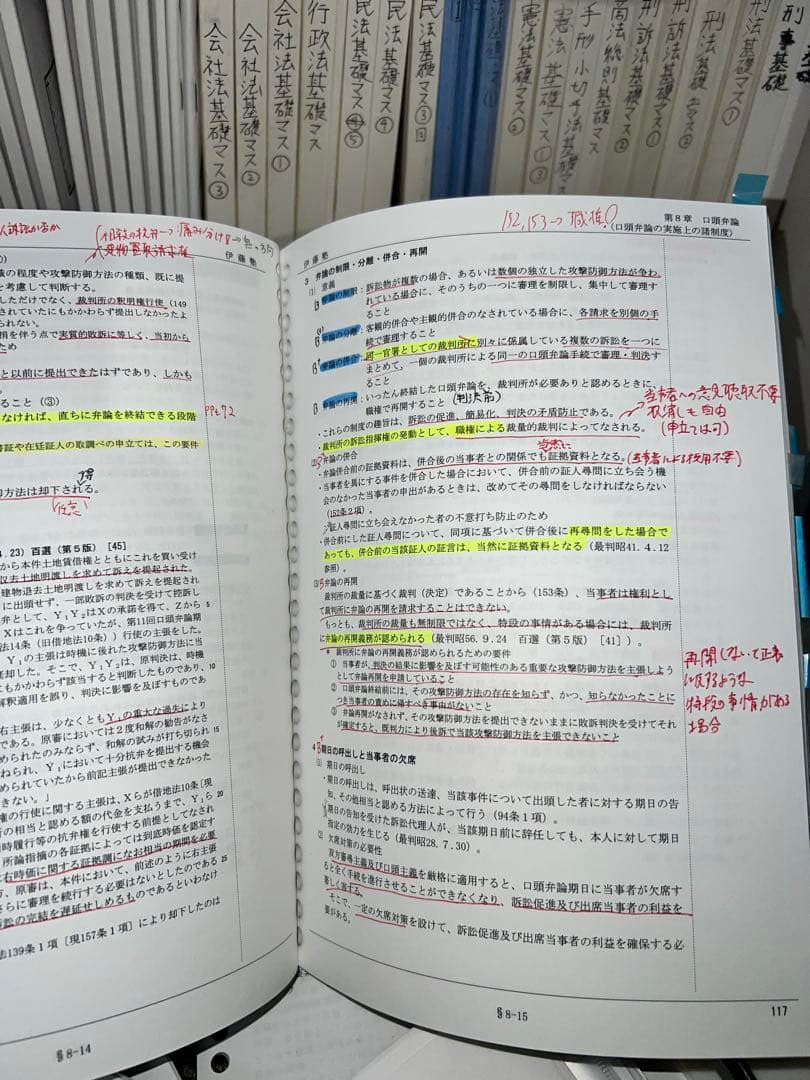 会社法基礎マス③
会社法基礎マス②
会社法基礎マス①
行政法基礎マス
民法基礎マス⑤
民法基礎マス④
民法基礎マス③
憲法基礎マス②
憲法基礎マス①
手形小切手法基礎マス
商法総則基礎マス
刑訴法基礎マス②
刑訴法基礎マス①
刑法基礎マス②
刑法基礎マス①
刑事基礎
伊藤塾
識の程度や攻撃防御方法の種類、既に提
を考慮して判断する。
しただけでなく、裁判所の釈明権行使（149
されていたにもかかわらず提出しなかったよ
られない。
相を伴う点で実質的敗訴に等しく、当初から
ため
と以前に提出できたはずであり、しかも
ること（③）
なければ、直ちに弁論を終結できる段階
PP.72
書証や在廷証人の取調べの申立ては、この要件
得
御方法は却下される。
（任意）
4.23）百選（第５版）[45]
から本件土地賃借権とともにこれを買い受け
収去土地明渡しを求めて訴えを提起された。
建物退去土地明渡しを求めて訴えを提起され
に出頭せず、一部敗訴の判決を受けて控訴し
弁として、Ｙ₁Ｙ₂はＸの承諾を得て、Ｚから 5
Ｘはこれを争っていたが、第11回口頭弁論期
法14条（旧借地法10条））行使の主張をした。
Ｙ₁の主張は時機に後れた攻撃防御方法に当
却下した。そこで、Ｙ₁Ｙ₂は、原判決は、時機
にもかかわらず該当すると判断したものであり、 10
解釈適用を誤り、判決に影響を及ぼすものであ
右主張は、少なくともＹ₁の重大な過失により
である。原審においては２度和解の勧告がなさ
められたのみならず、和解の試みが打ち切られ
ねられ、Ｙ₁において十分抗弁を提出する機会
められていたから前記主張が提出できなかった
できない。」
権の行使に関する主張は、Ｘらが借地法10条〔現
所の相当と認める額の代金を支払うまで、Ｙ₁ら 20
同時履行等の抗弁権を行使する前提としてなされ
所論指摘の各証拠によっては到底時価を認定す
は右時価に関する証拠調になお相当の期間を必要
ず、原審は、本件において、前述のように右主張
さらに審理を続行する必要はないとしたのである 25
訴訟の完結を遅延せしめるものであるといわなけ
法139条１項〔現157条１項〕により却下したのは
§8-14
152,153→職権！
第８章　口頭弁論
（口頭弁論の実施上の諸制度）
伊藤塾
3　弁論の制限・分離・併合・再開
(1)　意義
弁論の制限：訴訟物が複数の場合、あるいは数個の独立した攻撃防御方法が争わ
れている場合に、そのうちの一つに審理を制限し、集中して審理す
ること
弁論の分離：客観的併合や主観的併合のなされている場合に、各請求を別個の手
続で審理すること
弁論の併合：同一官署としての裁判所に別々に係属している複数の訴訟を一つに
まとめて、一個の裁判所による同一の口頭弁論手続で審理・判決す
ること
弁論の再開：いったん終結した口頭弁論を、裁判所が必要ありと認めるときに、
職権で再開すること（判決前）
当事者への意見聴取不要
取消しも自由
（申立ては可）
・これらの制度の趣旨は、訴訟の促進、簡易化、判決の矛盾防止である。
・裁判所の訴訟指揮権の発動として、職権による裁量的裁判によってなされる。
(2)　弁論の併合
当然に
・弁論併合前の証拠資料は、併合後の当事者との関係でも証拠資料となる。（当事者による援用不要）
・当事者を異にする事件を併合した場合において、併合前の証人尋問に立ち会う機
会のなかった当事者の申出があるときは、改めてその尋問をしなければならない
（152条２項）。
∵証人尋問に立ち会えなかった者の不意打ち防止のため
・併合前にした証人尋問について、同項に基づいて併合後に再尋問をした場合で
あっても、併合前の当該証人の証言は、当然に証拠資料となる（最判昭41.4.12
参照）。
(3)　弁論の再開
裁判所の裁量に基づく裁判（決定）であることから（153条）、当事者は権利とし
て裁判所に弁論の再開を請求することはできない。
もっとも、裁判所の裁量も無制限ではなく、特段の事情がある場合には、裁判所
に弁論の再開義務が認められる（最判昭56.9.24　百選（第５版）[41]）。
＊　裁判所に弁論の再開義務が認められるための要件
①　当事者が、判決の結果に影響を及ぼす可能性のある重要な攻撃防御方法を主張しよう
として弁論再開を申請していること
②　口頭弁論終結前には、その攻撃防御方法の存在を知らず、かつ、知らなかったことに
つき当事者の責めに帰すべき事由がないこと
③　弁論再開がなされず、その攻撃防御方法を提出できないままに敗訴判決を受けてそれ
が確定すると、既判力により後訴で当該攻撃防御方法を主張できないこと
再開しないって正義
に反するような
特段の事情がある
場合
4　期日の呼出しと当事者の欠席
(1)　期日の呼出し
・期日の呼出しは、呼出状の送達、当該事件について出頭した者に対する期日の告
知、その他相当と認める方法によって行う（94条１項）。
・期日の告知を受けた訴訟代理人が、当該期日前に辞任しても、本人に対して期日
指定の効力を生じる（最判昭28.7.30）。
(2)　欠席対策の必要性
双方審尋主義及び口頭主義を厳格に適用すると、口頭弁論期日に当事者が欠席す
ると全く手続を進行させることができなくなり、訴訟促進及び出席当事者の利益を
著しく害する。
そこで、一定の欠席対策を設けて、訴訟促進及び出席当事者の利益を確保する必
要がある。
§8-15
117